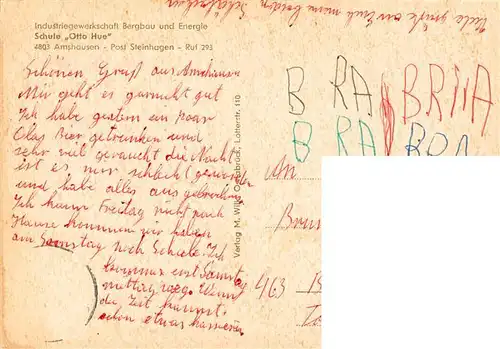 Industriegewerkschaft Bergbau und Energie
Schule „Otto Hue"
4803 Amshausen - Post Steinhagen - Ruf 293
Viele grüße an Euch meine beiden
Schönen Gruß aus Amshausen
Mir geht es garnicht gut
Ich habe gestern ein paar
Glas Bier getrunken und
sehr viel geraucht die Nacht
ist es mir schlecht geworden
und habe alles aus gebrochen
Ich kann Freitag nicht nach
Hause kommen wir haben
am Samstag noch Schule. Ich
komme erst Samstag
mittag weg. Wenn
du Zeit kannst
schon etwas
Verlag M. Wilke Osnabrück, Lotterstr. 110
B RA BRIIA
B RA BRA
An
463